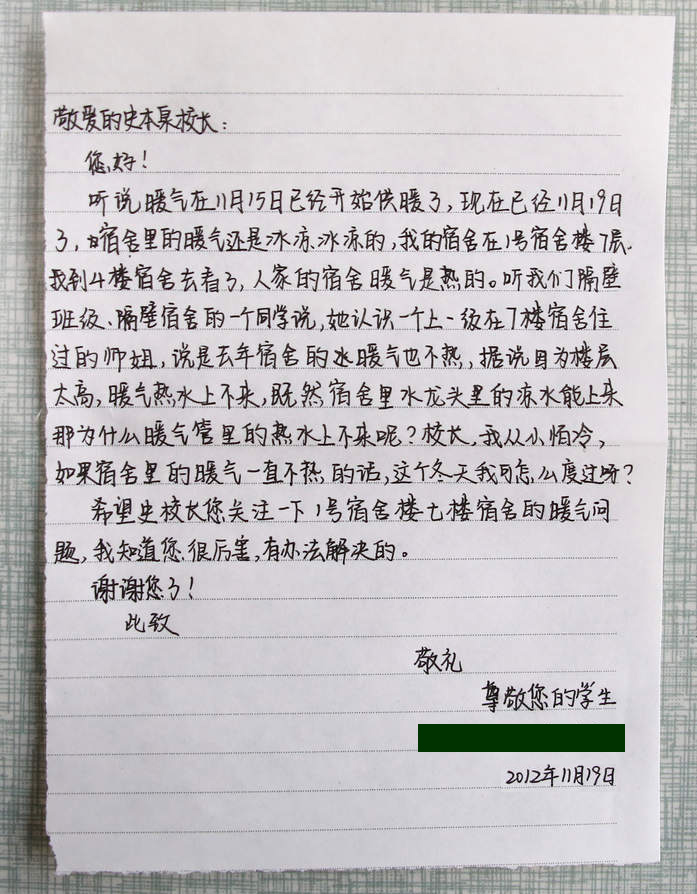 敬爱的史本泉校长：
您好！
听说暖气在11月15日已经开始供暖了，现在已经11月19日
了，宿舍里的暖气还是冰凉冰凉的，我的宿舍在1号宿舍楼7层.
我到4楼宿舍去看了，人家的宿舍暖气是热的。听我们隔壁
班级、隔壁宿舍的一个同学说，她认识一个上一级在7楼宿舍住
过的师姐，说是去年宿舍的水暖气也不热，据说因为楼层
太高，暖气热水上不来，既然宿舍里水龙头里的凉水能上来
那为什么暖气管里的热水上不来呢？校长，我从小怕冷，
如果宿舍里的暖气一直不热的话，这个冬天我可怎么度过呀？
希望史校长您关注一下1号宿舍楼七楼宿舍的暖气问
题，我知道您很厉害，有办法解决的。
谢谢您了！
此致
敬礼
尊敬您的学生
2012年11月19日